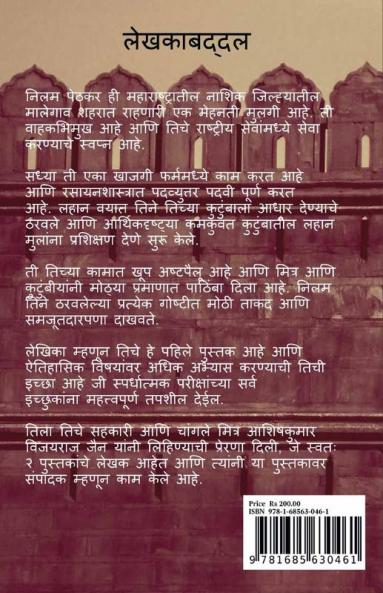 लेखकाबद्दल
निलम पेठकर ही महाराष्ट्रातील नाशिक जिल्ह्यातील
मालेगाव शहरात राहणारी एक मेहनती मुलगी आहे. ती
वाहकभिमुख आहे आणि तिचे राष्ट्रीय सेवांमध्ये सेवा
करण्याचे स्वप्न आहे.
सध्या ती एका खाजगी फर्ममध्ये काम करत आहे
आणि रसायनशास्त्रात पदव्युतर पदवी पूर्ण करत
आहे. लहान वयात तिने तिच्या कुटुंबाला आधार देण्याचे
ठरवले आणि आर्थिकदृष्ट्या कमकुवत कुटुंबातील लहान
मुलांना प्रशिक्षण देणे सुरू केले.
ती तिच्या कामात खूप अष्टपैलू आहे आणि मित्र आणि
कुटुंबीयांनी मोठ्या प्रमाणात पाठिंबा दिला आहे. निलम
तिने ठरवलेल्या प्रत्येक गोष्टीत मोठी ताकद आणि
समजूतदारपणा दाखवते.
लेखिका म्हणून तिचे हे पहिले पुस्तक आहे आणि
ऐतिहासिक विषयांवर अधिक अभ्यास करण्याची तिची
इच्छा आहे जी स्पर्धात्मक परीक्षांच्या सर्व
इच्छुकांना महत्त्वपूर्ण तपशील देईल.
तिला तिचे सहकारी आणि चांगले मित्र आशिषकुमार
विजयराज जैन यांनी लिहिण्याची प्रेरणा दिली, जे स्वतः
२ पुस्तकांचे लेखक आहेत आणि त्यांनी या पुस्तकावर
संपादक म्हणून काम केले आहे.
Price Rs 200.00
ISBN 978-1-68563-046-1
9 781685 630461